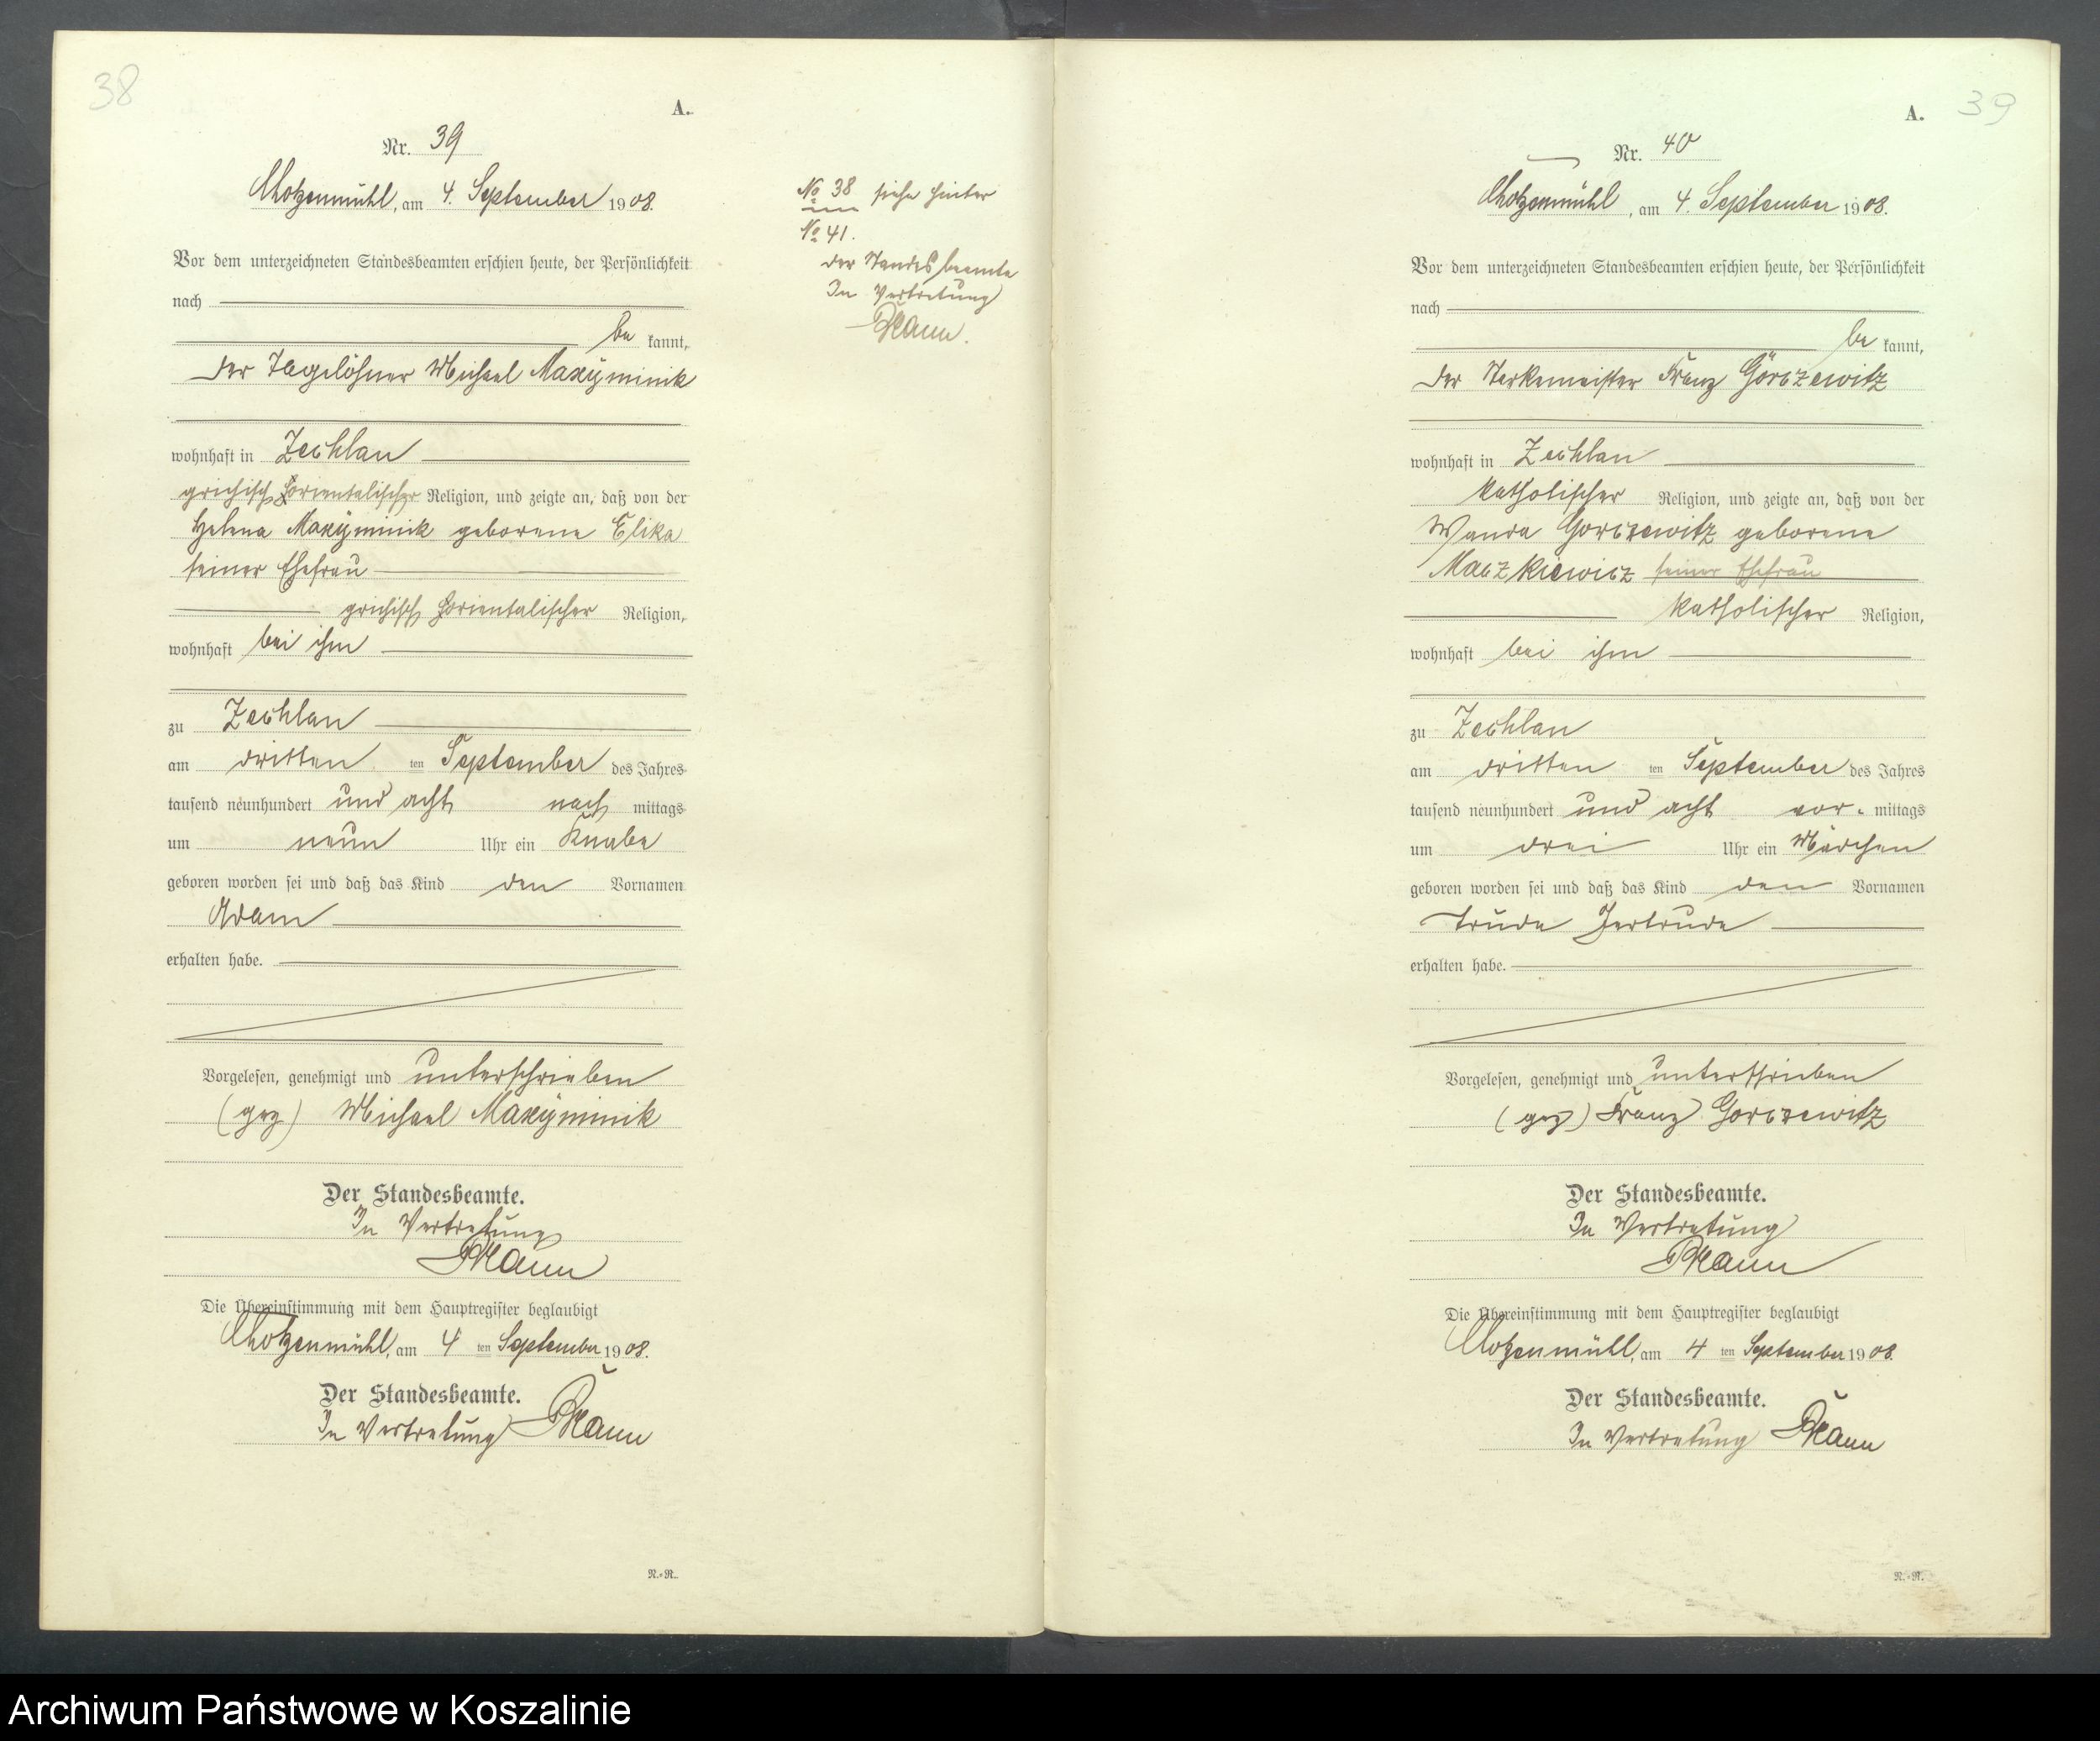 38
A.
Nr. 39
Chotzenmühl, am 4. September 1908.
Vor dem unterzeichneten Standesbeamten erschien heute, der Persönlichkeit
nach
be kannt,
der Tagelöhner Michael Maxÿminik
wohnhaft in Zechlau
grichisch orientalischer Religion, und zeigte an, daß von der
Helena Maxÿminik geborene Elika
seiner Ehefrau
grichisch orientalischer Religion,
wohnhaft bei ihm
zu Zechlau
am dritten ten September des Jahres
tausend neunhundert und acht nach mittags
um neun Uhr ein Knabe
geboren worden sei und daß das Kind den Vornamen
Adam
erhalten habe.
Vorgelesen, genehmigt und unterschrieben
(gez) Michael Maxÿminik
Der Standesbeamte.
In Vertretung
Die Übereinstimmung mit dem Hauptregister beglaubigt
Chotzenmühl, am 4 ten September 1908.
Der Standesbeamte.
In Vertretung
R.=R.
No 38 siehe hinter
No 41.
Der Standesbeamte
In Vertretung
39
A.
Nr. 40
Chotzenmühl, am 4. September 1908.
Vor dem unterzeichneten Standesbeamten erschien heute, der Persönlichkeit
nach
be kannt,
der Franz Görczewitz
wohnhaft in Zechlau
katholischer Religion, und zeigte an, daß von der
Wanda Gorczewitz geborene
Maczkiewicz seiner Ehefrau
katholischer Religion,
wohnhaft bei ihm
zu Zechlau
am dritten ten September des Jahres
tausend neunhundert und acht vor- mittags
um drei Uhr ein Mädchen
geboren worden sei und daß das Kind den Vornamen
Trude Gertrude
erhalten habe.
Vorgelesen, genehmigt und unterschrieben
(gez) Franz Gorczewitz
Der Standesbeamte.
In Vertretung
Die Übereinstimmung mit dem Hauptregister beglaubigt
Chotzenmühl, am 4 ten September 1908.
Der Standesbeamte.
In Vertretung
R.=R.
Archiwum Państwowe w Koszalinie